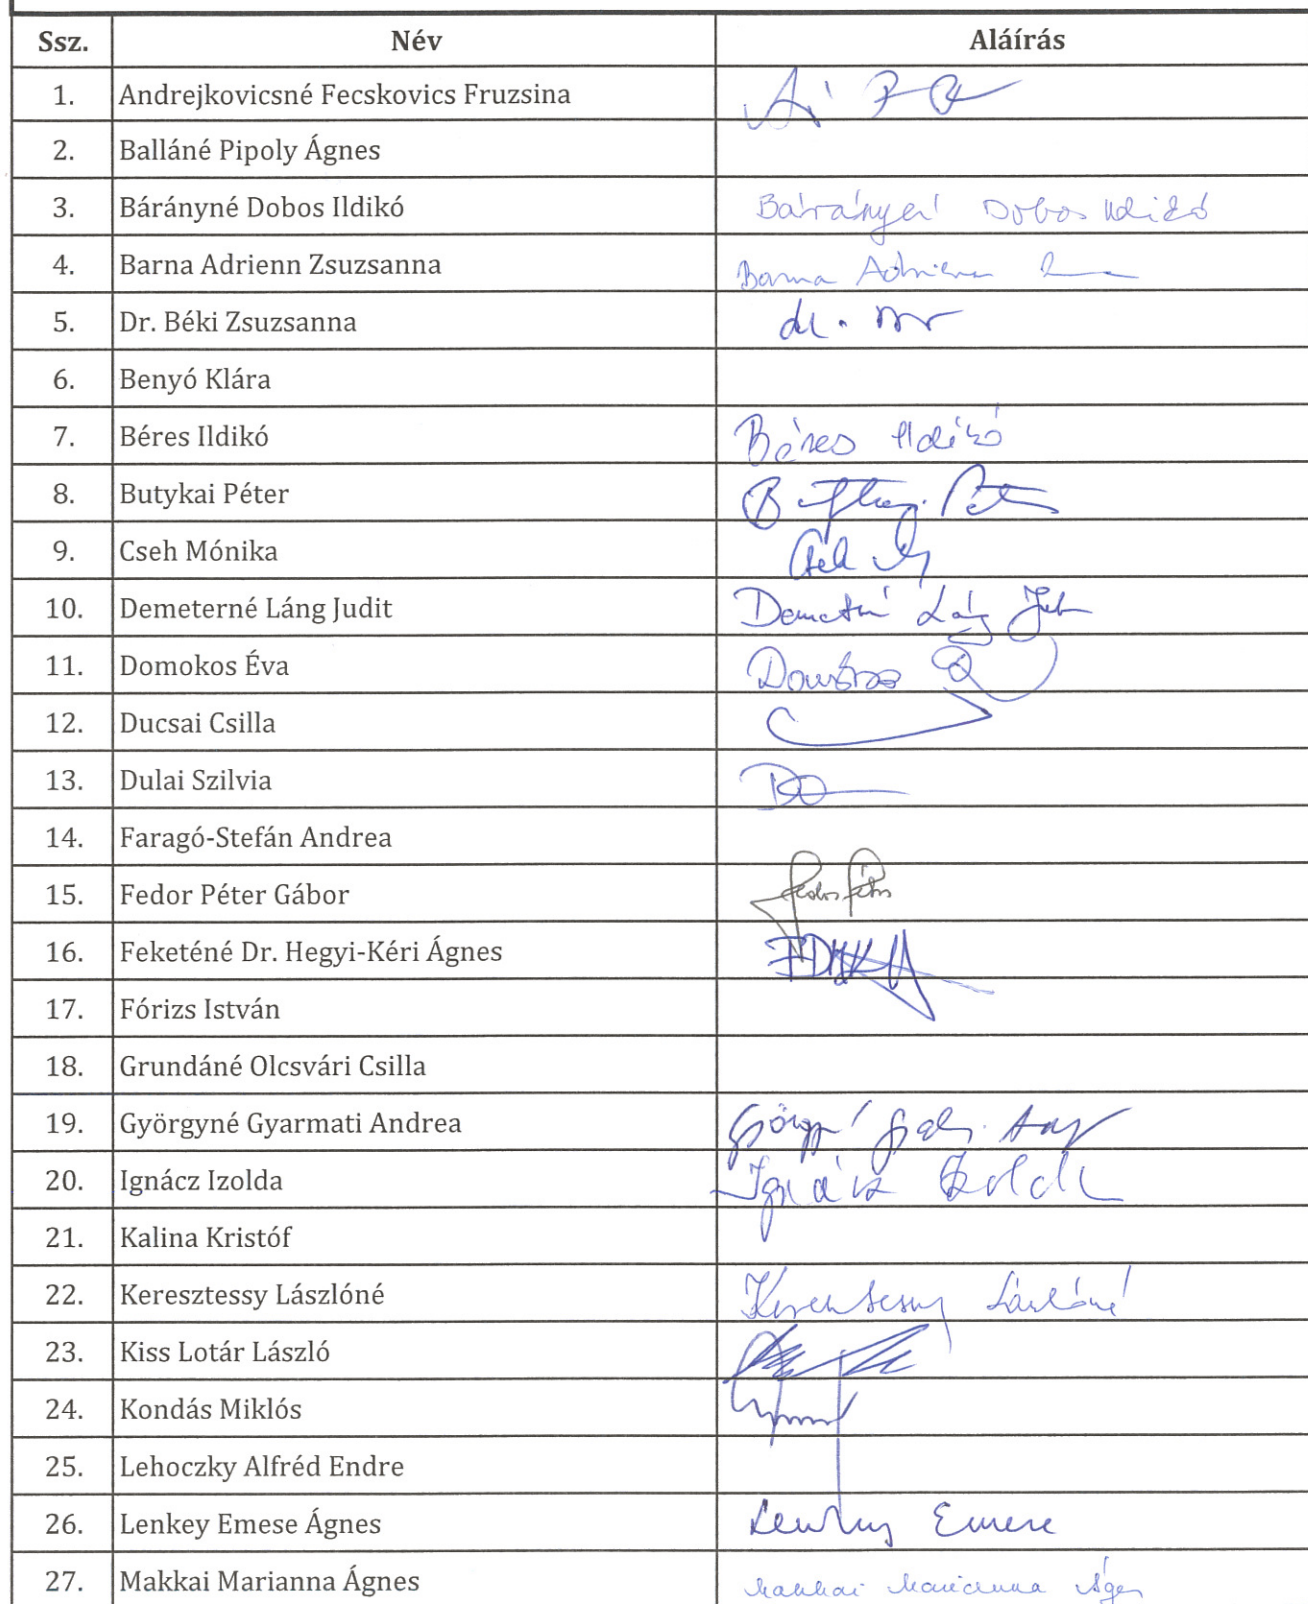 Ssz. Név Aláírás
1. Andrejkovicsné Fecskovics Fruzsina
2. Balláné Pipoly Ágnes
3. Bárányné Dobos Ildikó Bárányné Dobos Ildikó
4. Barna Adrienn Zsuzsanna Barna Adrienn
5. Dr. Béki Zsuzsanna dr.
6. Benyó Klára
7. Béres Ildikó Béres Ildikó
8. Butykai Péter
9. Cseh Mónika
10. Demeterné Láng Judit
11. Domokos Éva Domokos
12. Ducsai Csilla
13. Dulai Szilvia
14. Faragó-Stefán Andrea
15. Fedor Péter Gábor Fedor Péter
16. Feketéné Dr. Hegyi-Kéri Ágnes
17. Fórizs István
18. Grundáné Olcsvári Csilla
19. Györgyné Gyarmati Andrea
20. Ignácz Izolda Ignácz Izolda
21. Kalina Kristóf
22. Keresztessy Lászlóné Keresztessy Lászlóné
23. Kiss Lotár László
24. Kondás Miklós
25. Lehoczky Alfréd Endre
26. Lenkey Emese Ágnes Lenkey Emese
27. Makkai Marianna Ágnes Makkai Marianna Ágnes